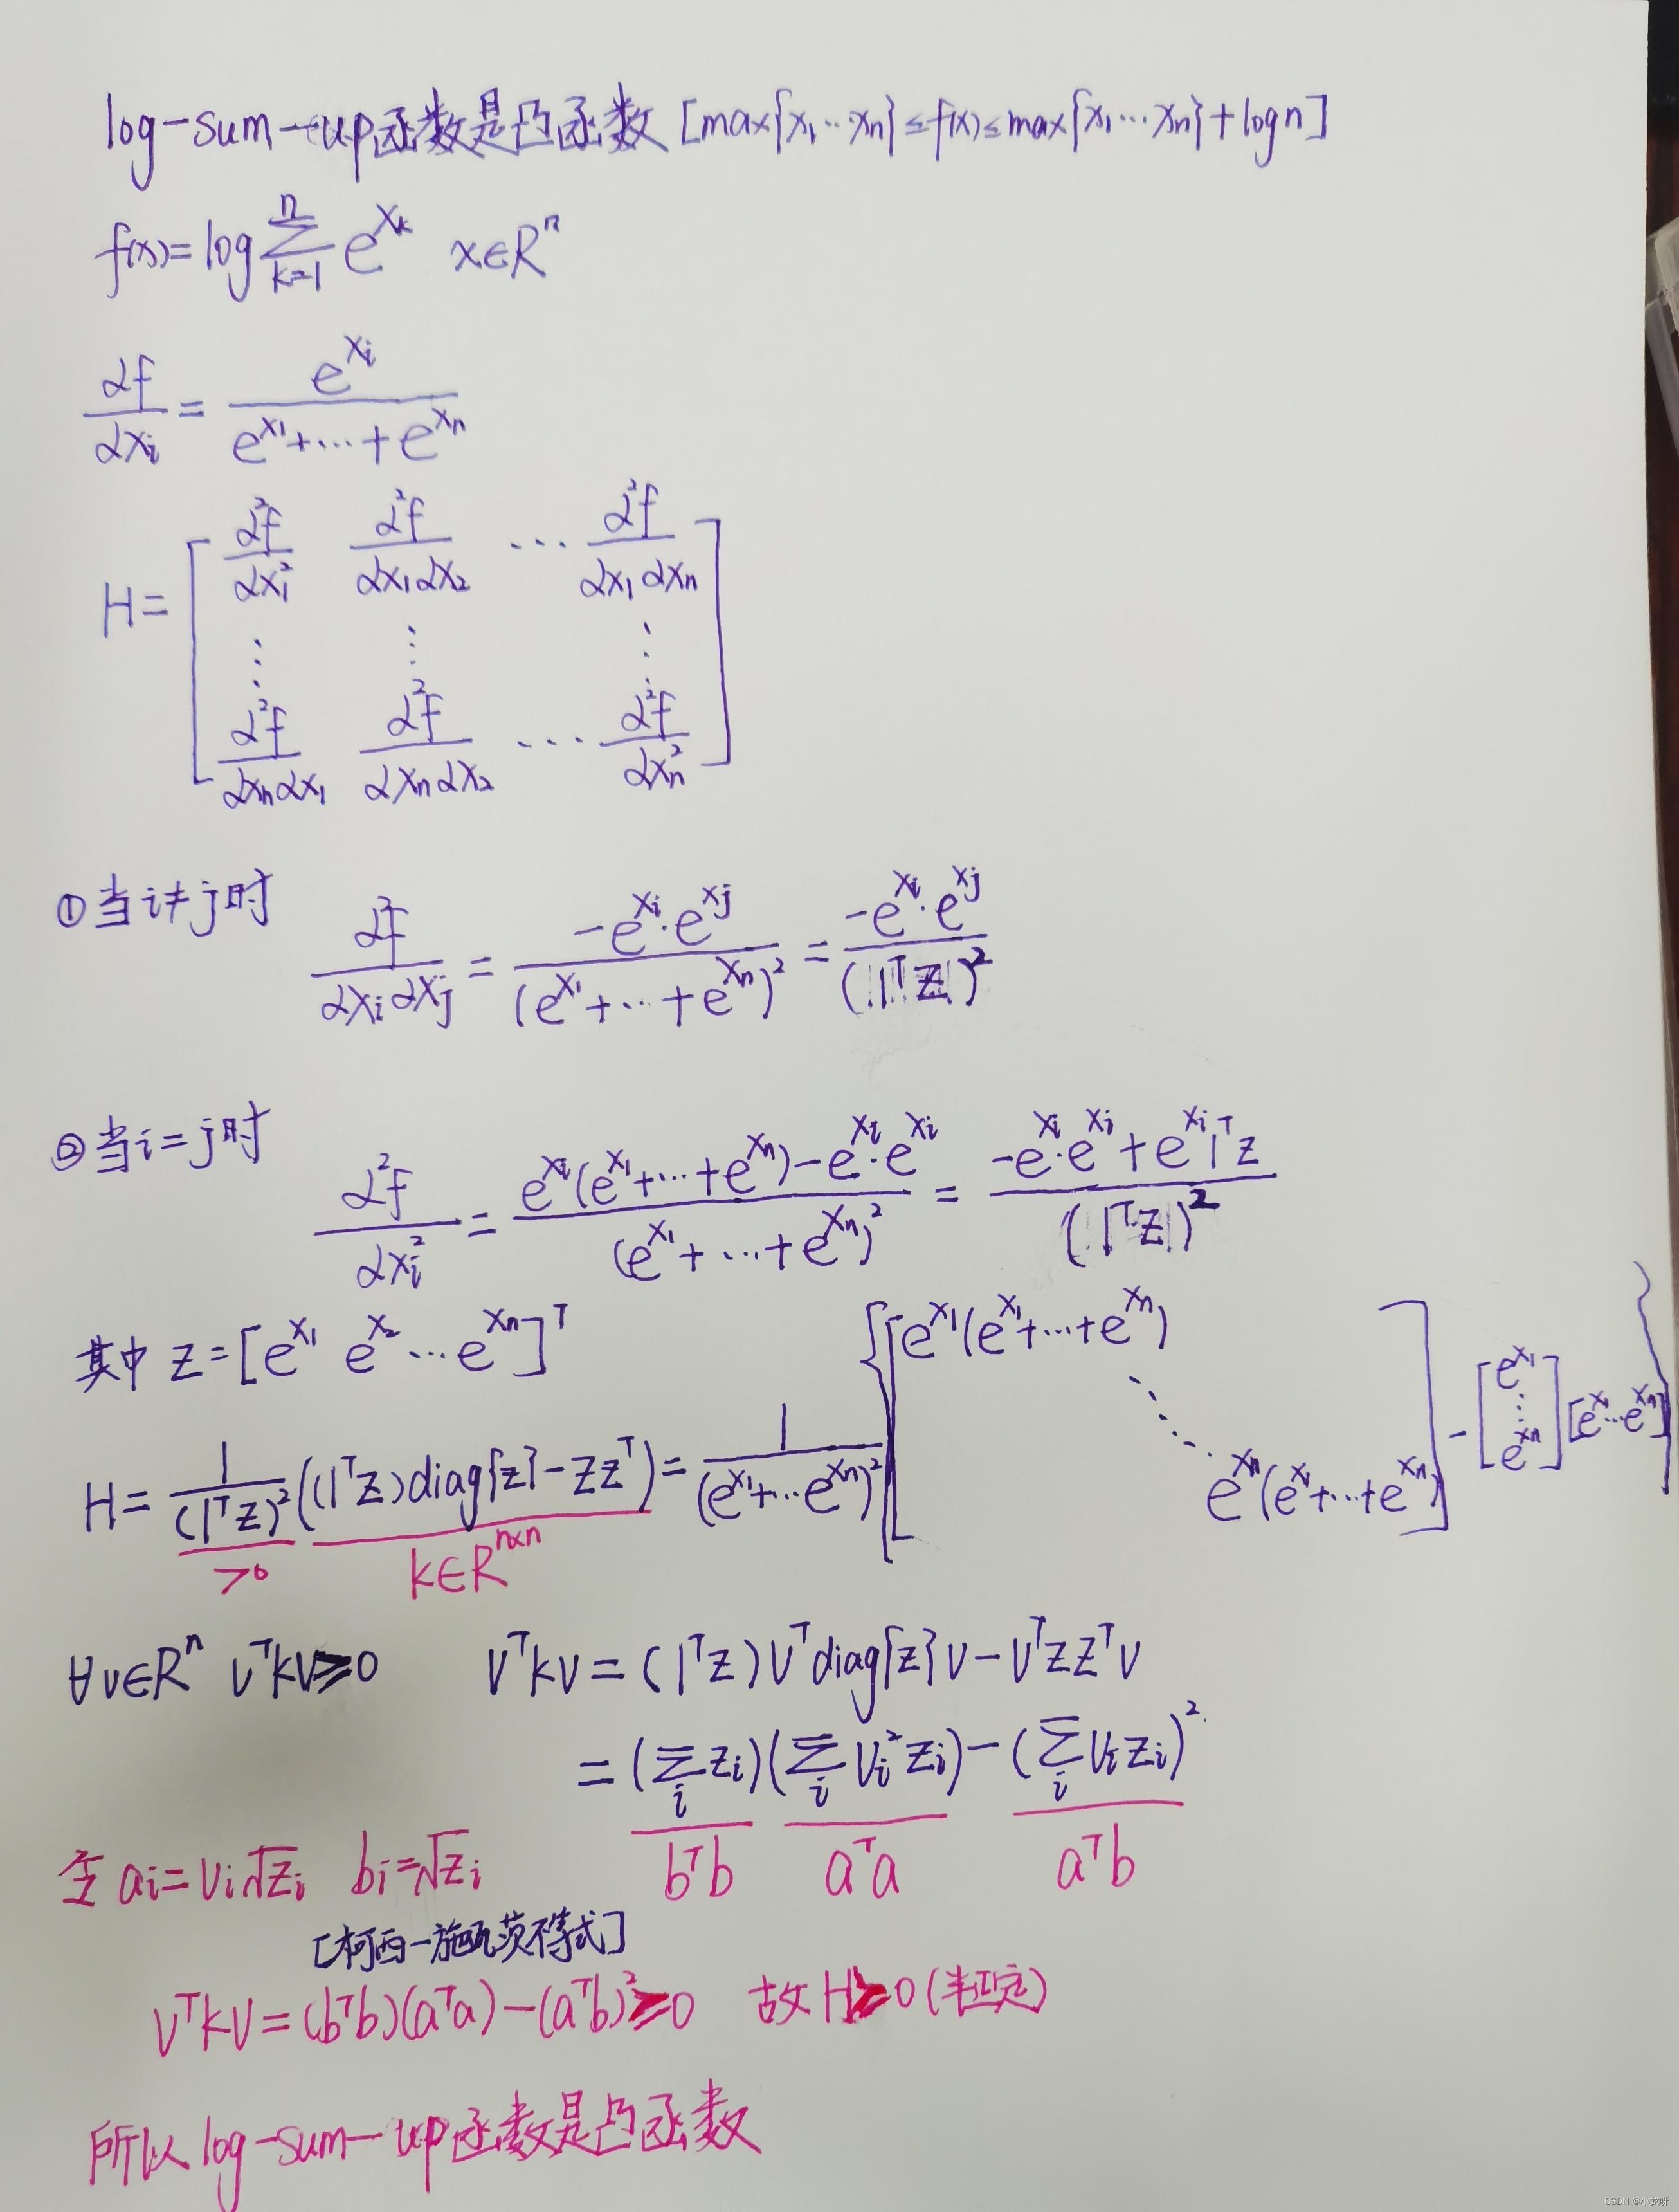 log-sum-up函数是凸函数 [max{x₁…xₙ}≤f(x)≤max{x₁…xₙ}+logn]
f(x)=log∑_{k=1}^{n} e^{x_k} x∈Rⁿ
αf/αx_i = e^{x_i}/(e^{x₁}+…+e^{xₙ})
H=[α²f/αx₁² α²f/αx₁αx₂ … α²f/αx₁αxₙ
⋮ ⋮ ⋮
α²f/αxₙαx₁ α²f/αxₙαx₂ … α²f/αxₙ²]
①当i≠j时 α²f/αx_iαx_j = -e^{x_i}·e^{x_j}/(e^{x₁}+…+e^{xₙ})² = -e^{x_i}·e^{x_j}/(1ᵀz)²
②当i=j时 α²f/αx_i² = (e^{x_i}(e^{x₁}+…+e^{xₙ})-e^{x_i}·e^{x_i})/(e^{x₁}+…+e^{xₙ})² = (-e^{x_i}·e^{x_i}+e^{x_i}1ᵀz)/(1ᵀz)²
其中 z=[e^{x₁} e^{x₂}…e^{xₙ}]ᵀ
H=1/(1ᵀz)²((1ᵀz)diag{z}-zzᵀ)=1/(e^{x₁}+…e^{xₙ})²{[e^{x₁}(e^{x₁}+…+e^{xₙ}) ⋱ e^{xₙ}(e^{x₁}+…+e^{xₙ})]-[e^{x₁}⋮e^{xₙ}][e^{x₁}…e^{xₙ}]}
>0 k∈R^{n×n}
∀v∈Rⁿ vᵀkv≥0 vᵀkv=(1ᵀz)vᵀdiag{z}v-vᵀzzᵀv
=(∑_i z_i)(∑_i v_i²z_i)-(∑_i v_iz_i)²
bᵀb aᵀa aᵀb
令 a_i=v_i√z_i b_i=√z_i
[柯西-施瓦茨不等式]
vᵀkv=(bᵀb)(aᵀa)-(aᵀb)²≥0 故H≥0(半正定)
所以log-sum-up函数是凸函数